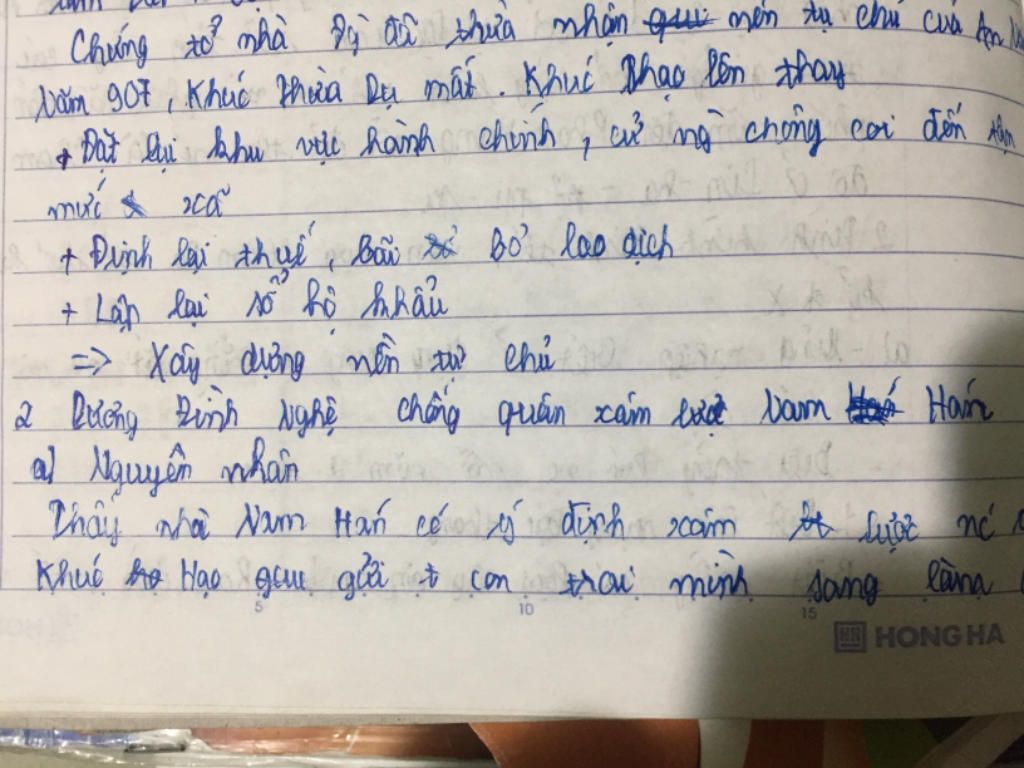 Chứng tỏ nhà Đ đã thừa nhận nền tự chủ của An
Năm 907, Khúc Thừa Dụ mất. Khúc Thạo lên thay
+ Đặt lại khu vực hành chính, cử ng chông coi đến tận
mức xã
+ Định lại thuế, bãi bỏ lao dịch
+ Lập lại sổ hộ khẩu
=> Xây dựng nền tự chủ
2 Dương Đình Nghệ chống quân xâm lược Nam Hán
a) Nguyên nhân
Thấy nhà Nam Hán có ý định xâm lược nc
Khúc Hạo gửi con trai mình sang làm
5 10 15
HN HONG HA